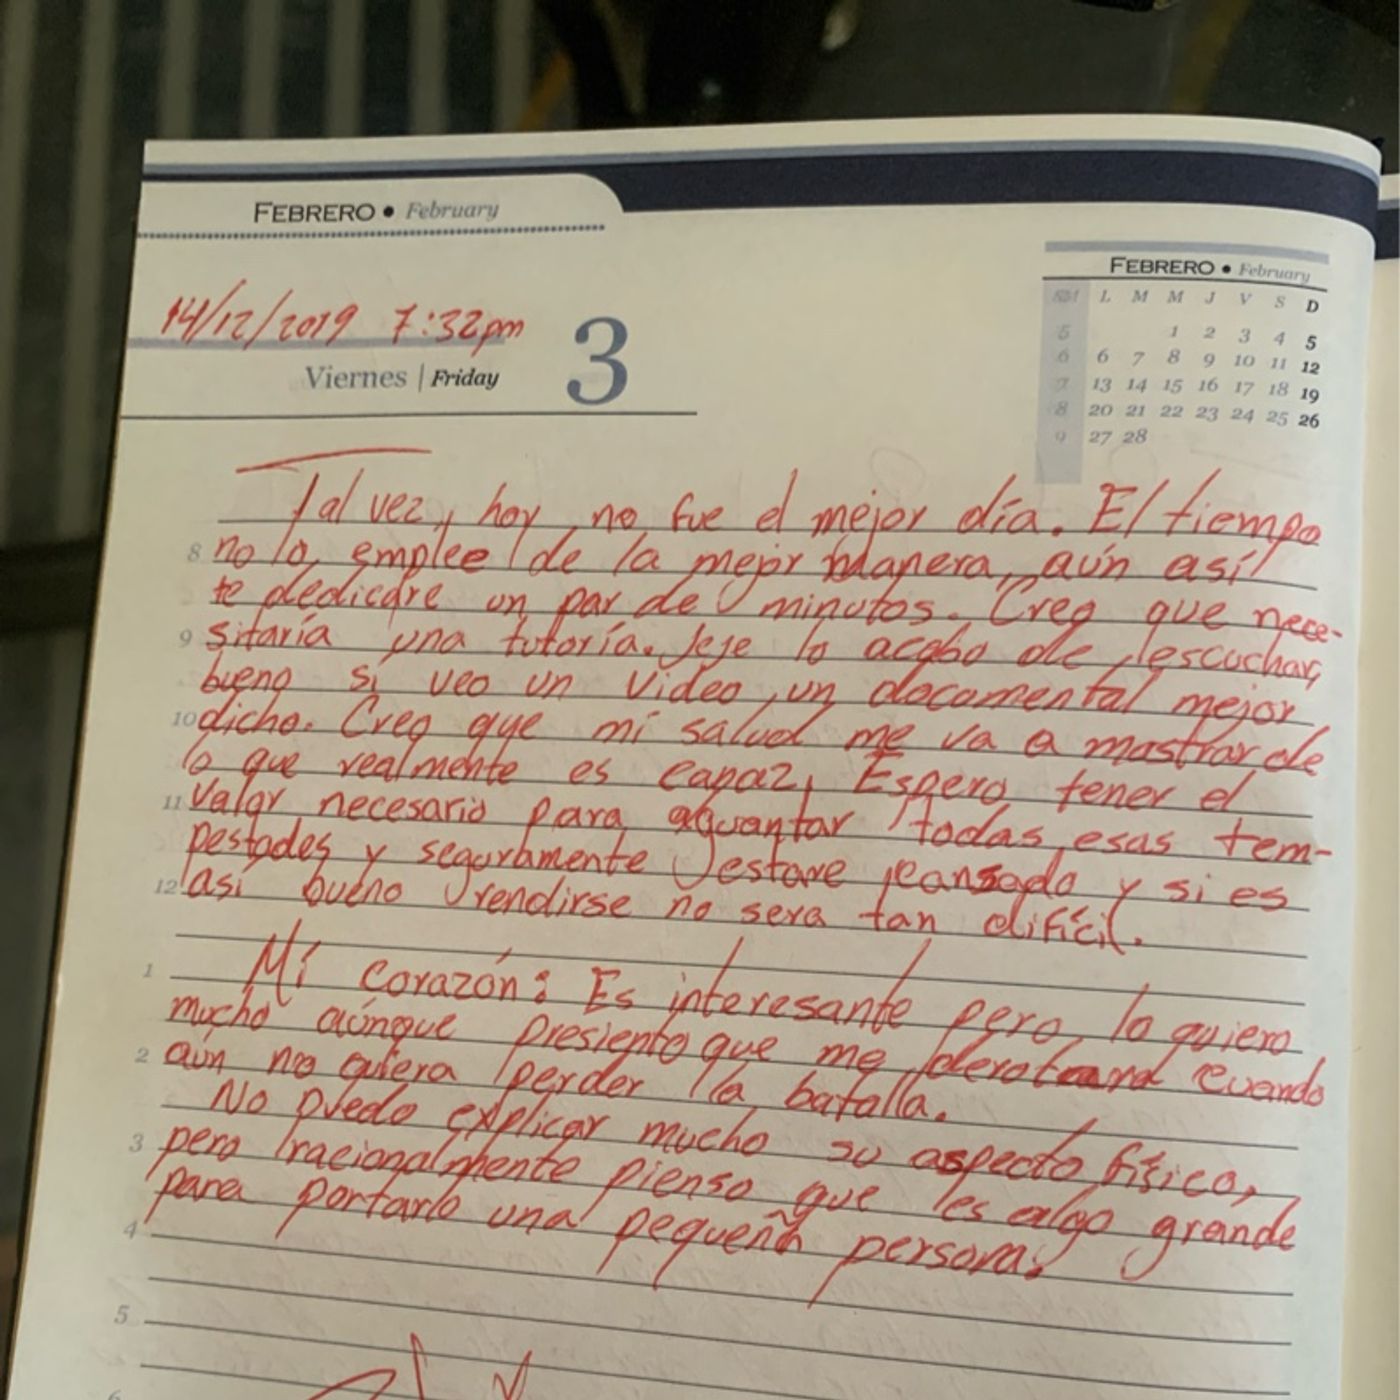 FEBRERO • February
FEBRERO • February
SM L M M J V S D
5 1 2 3 4 5
6 6 7 8 9 10 11 12
7 13 14 15 16 17 18 19
8 20 21 22 23 24 25 26
9 27 28
14/12/2019 7:32pm
Viernes | Friday 3
Tal vez, hoy no fue el mejor día. El tiempo
8 no lo emplee de la mejor manera, aún así
te dedicare un par de minutos. Creo que nece-
9 sitaría una tutoría. Jeje lo acabo de escuchar,
bueno si veo un video, un documental mejor
10 dicho. Creo que mi salud me va a mostrar de
lo que realmente es capaz, Espero tener el
11 valor necesario para aguantar todas esas tem-
pestades y seguramente estare cansado y si es
12 así bueno rendirse no sera tan difícil.
1 Mí corazón: Es interesante pero lo quiero
mucho aúnque presiento que me derotara cuando
2 aún no quiera perder la batalla.
No puedo explicar mucho su aspecto físico,
3 pero racionalmente pienso que es algo grande
para portarlo una pequeña persona.
4
5
6